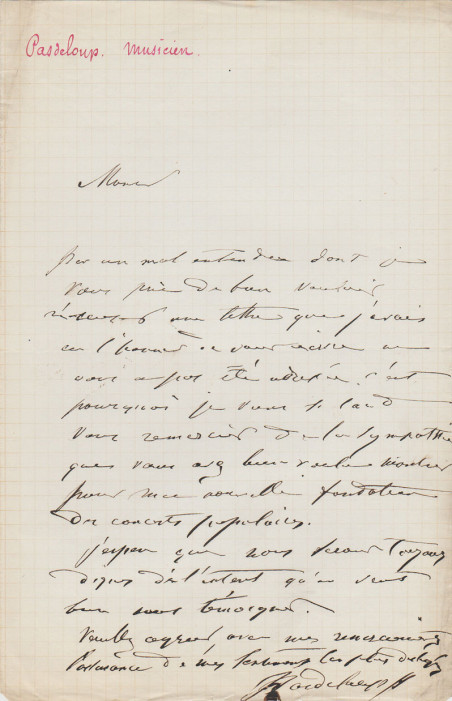 Pasdeloup. musicien.
Monsieur
Par un mal entendu dont je
vous prie de bien vouloir
m'excuser une lettre que j'avais
eu l'honneur de vous écrire ne
vous a pas été adressée. c'est
pourquoi je viens si tard
vous remercier de la sympathie
que vous avez bien voulu montrer
pour ma nouvelle fondation
des concerts populaires.
j'espère que nous serons toujours
dignes de l'intérêt qu'on veut
bien nous témoigner.
Veuillez agréer avec mes remerciements
l'assurance de mes sentiments les plus distingués
Pasdeloup